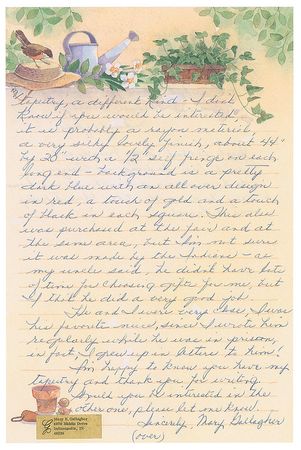 tapestry, a different kind - I don't
know if you would be interested,
it is probably a rayon material,
a very silky lovely finish, about 44"
by 20" with a ½" self fringe on each
long end - background is a pretty
dark blue with an all over design
in red, a touch of gold and a touch
of black in each square. This also
was purchased at the fair and at
the same area, but I'm not sure
it was made by the Indians - as
my uncle said, he didn't have lots
of time for choosing gifts for me, but
I think he did a very good job.
He and I were very close. I was
his favorite niece, since I wrote him
regularly while he was in prison,
in fact, I grew up in letters to him!
I'm happy to know you have my
tapestry and thank you for writing.
Would you be interested in the
other one, please let me know.
Sincerely, Mary Gallagher
(over)
Mary E. Gallagher
Indianapolis, IN